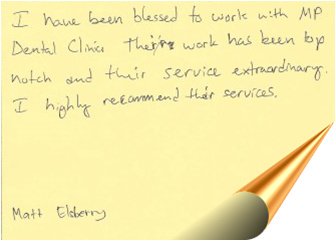 I have been blessed to work with MP
Dental Clinic Their work has been top
notch and their service extraordinary.
I highly recommend their services.
Matt Elsberry